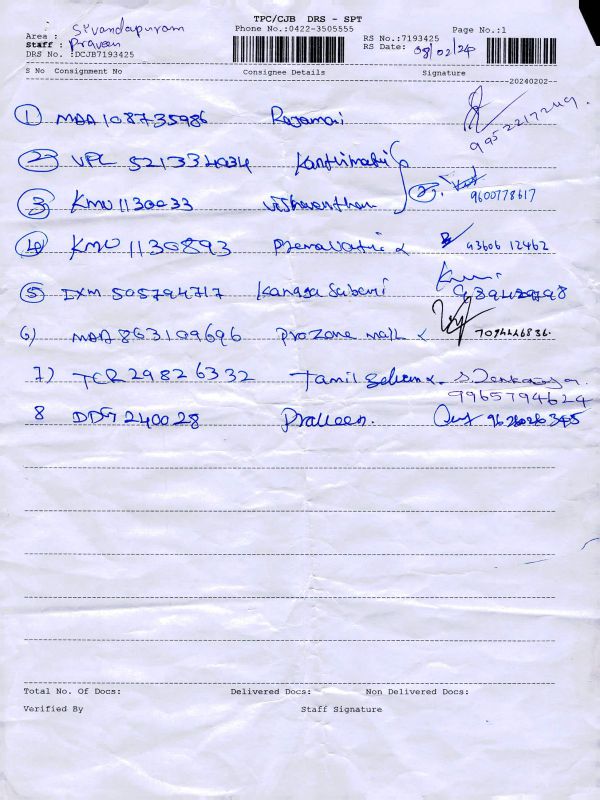 TPC/CJB DRS - SPT
Area : Sivandapuram Phone No.:0422-3505555 RS No.:7193425 Page No.:1
Staff : Praveen RS Date: 08/02/24
DRS No. :DCJB7193425
S No Consignment No Consignee Details Signature
20240202
1 MAA108735986 Rajamani 9952217249
2 VPL 521334034 Kanthimathi
3 KMU1130033 Vishwanthan 9600778617
4 KMU1130893 Premavathi 93606 12462
5 IXM 505794717 Kanaga Saberi
6) MAA863109696 Prozone mall 7094446836
7) TCR29826332 Tamil Selvan
9965794624
8 DDG240028 Praveen.
Total No. Of Docs: Delivered Docs: Non Delivered Docs:
Verified By Staff Signature